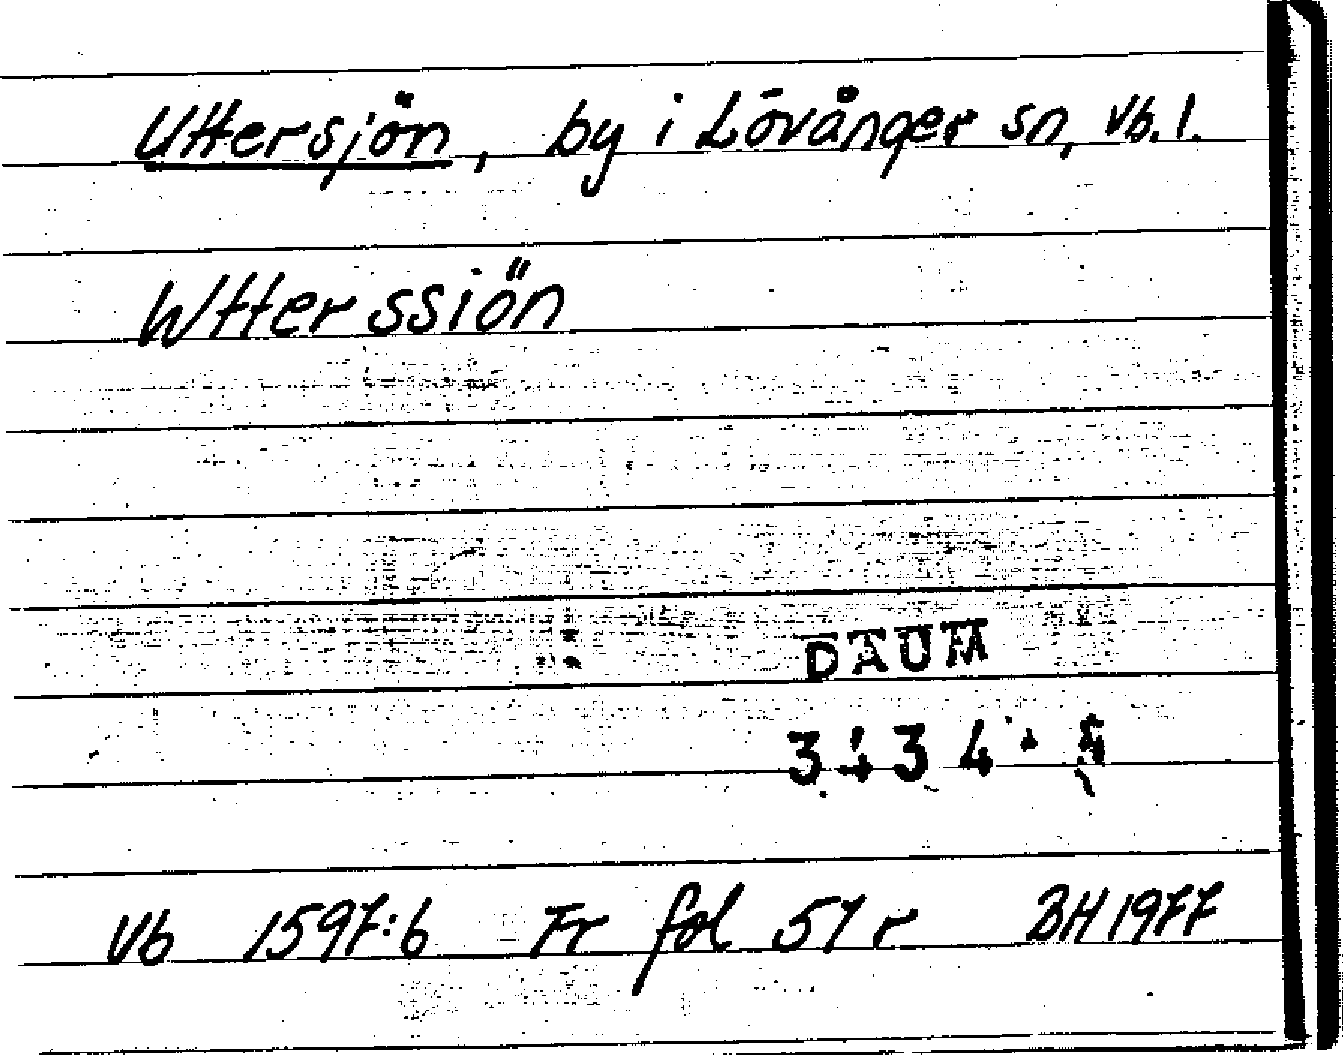 Uttersjön, by i Lövånger sn, Vb. l.
Wtterssiön
DAUM
Vb 1597:6 Fr fol 51 r BH 1977